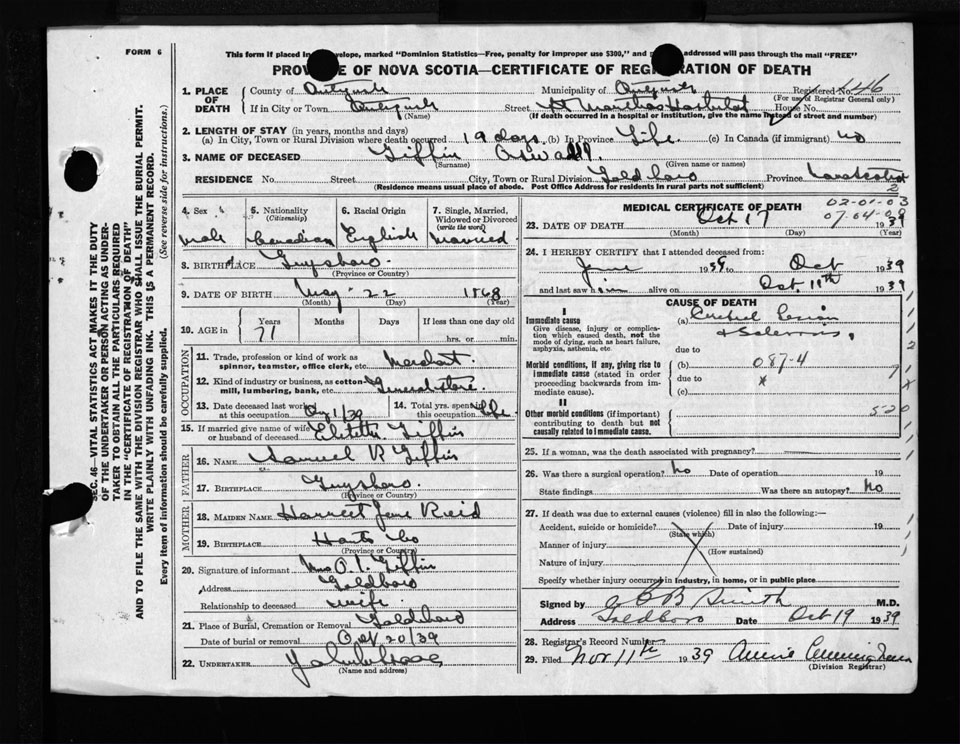 FORM 6
This form if placed in velope, marked "Dominion Statistics—Free, penalty for improper use $300," and addressed will pass through the mail "FREE"
PRO E OF NOVA SCOTIA—CERTIFICATE OF REG RATION OF DEATH
1. PLACE OF DEATH
County of Antigonish Municipality of Antigonish Registered No. 146
(For use of Registrar General only)
If in City or Town Antigonish Street St Marthas Hospital House No.
(Name) (If death occurred in a hospital or institution, give the name instead of street and number)
2. LENGTH OF STAY (in years, months and days)
(a) In City, Town or Rural Division where death occurred 19 days (b) In Province Life (c) In Canada (if immigrant) no
3. NAME OF DECEASED Giffin Oswald
(Surname) (Given name or names)
RESIDENCE No. Street City, Town or Rural Division Goldboro Province Nova Scotia
(Residence means usual place of abode. Post Office Address for residents in rural parts not sufficient)
2
4. Sex Male
5. Nationality (Citizenship) Canadian
6. Racial Origin English
7. Single, Married, Widowed or Divorced (write the word) Married
8. BIRTHPLACE Guysboro
(Province or Country)
9. DATE OF BIRTH May 22 1868
(Month) (Day) (Year)
10. AGE in Years Months Days If less than one day
71 hrs. or min.
OCCUPATION
11. Trade, profession or kind of work as spinner, teamster, office clerk, etc. Merchant
12. Kind of industry or business, as cotton-mill, lumbering, bank, etc. General store
13. Date deceased last worked at this occupation 1/39
14. Total yrs. spent in this occupation life
15. If married give name of wife or husband of deceased Giffin
FATHER
16. NAME Samuel R Giffin
17. BIRTHPLACE Guysboro
(Province or Country)
MOTHER
18. MAIDEN NAME Harriet Jane Reid
19. BIRTHPLACE Hants Co
(Province or Country)
20. Signature of informant Mrs O. Giffin
Address Goldboro
Relationship to deceased wife
21. Place of Burial, Cremation or Removal Goldboro
Date of burial or removal Oct 20/39
22. UNDERTAKER
(Name and address)
MEDICAL CERTIFICATE OF DEATH
02-01-03
07-04-08
23. DATE OF DEATH Oct 17 1939
(Month) (Day) (Year)
24. I HEREBY CERTIFY that I attended deceased from:
June 1939 to Oct 1939
and last saw him alive on Oct. 11th 1939
CAUSE OF DEATH
I
Immediate cause (a)
Give disease, injury or complication which caused death, not the mode of dying, such as heart failure, asphyxia, asthenia, etc.
due to
Morbid conditions, if any, giving rise to immediate cause (stated in order proceeding backwards from immediate cause).
(b) 087-4
due to
(c)
II
Other morbid conditions (if important) contributing to death but not causally related to immediate cause.
520
25. If a woman, was the death associated with pregnancy?
26. Was there a surgical operation? no Date of operation 19
State findings Was there an autopsy? No
27. If death was due to external causes (violence) fill in also the following:—
Accident, suicide or homicide? Date of injury 19
(State which)
Manner of injury
(How sustained)
Nature of injury
Specify whether injury occurred in industry, in home, or in public place
Signed by Smith M.D.
Address Goldboro Date Oct 19 1939
28. Registrar's Record Number
29. Filed Nov 11th 1939 Annie
(Division Registrar)
SEC. 46—VITAL STATISTICS ACT MAKES IT THE DUTY
OF THE UNDERTAKER OR PERSON ACTING AS UNDER-
TAKER TO OBTAIN ALL THE PARTICULARS REQUIRED
IN THE "CERTIFICATE OF REGISTRATION OF DEATH"
AND TO FILE THE SAME WITH THE DIVISION REGISTRAR WHO SHALL ISSUE THE BURIAL PERMIT.
WRITE PLAINLY WITH UNFADING INK. THIS IS A PERMANENT RECORD.
Every item of information should be carefully supplied. (See reverse side for instructions.)